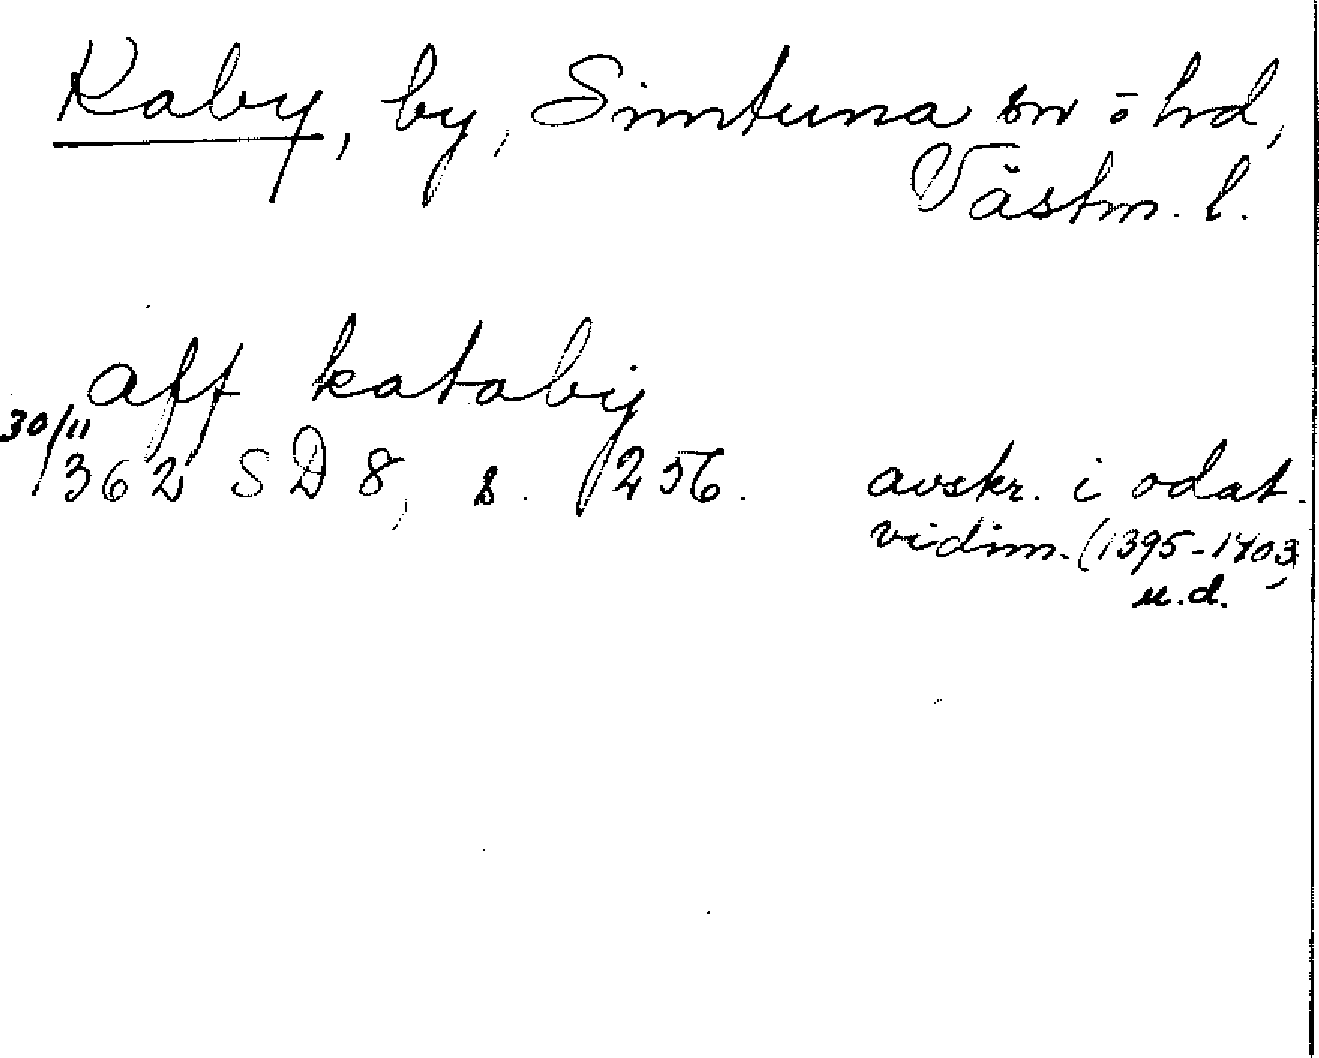 Kaby, by, Simtuna sn o hd,
Västm. l.
aff katabij
30/11
1362 SD 8, s. 256. avskr. i odat.
vidim. (1395-1403,
u.d.